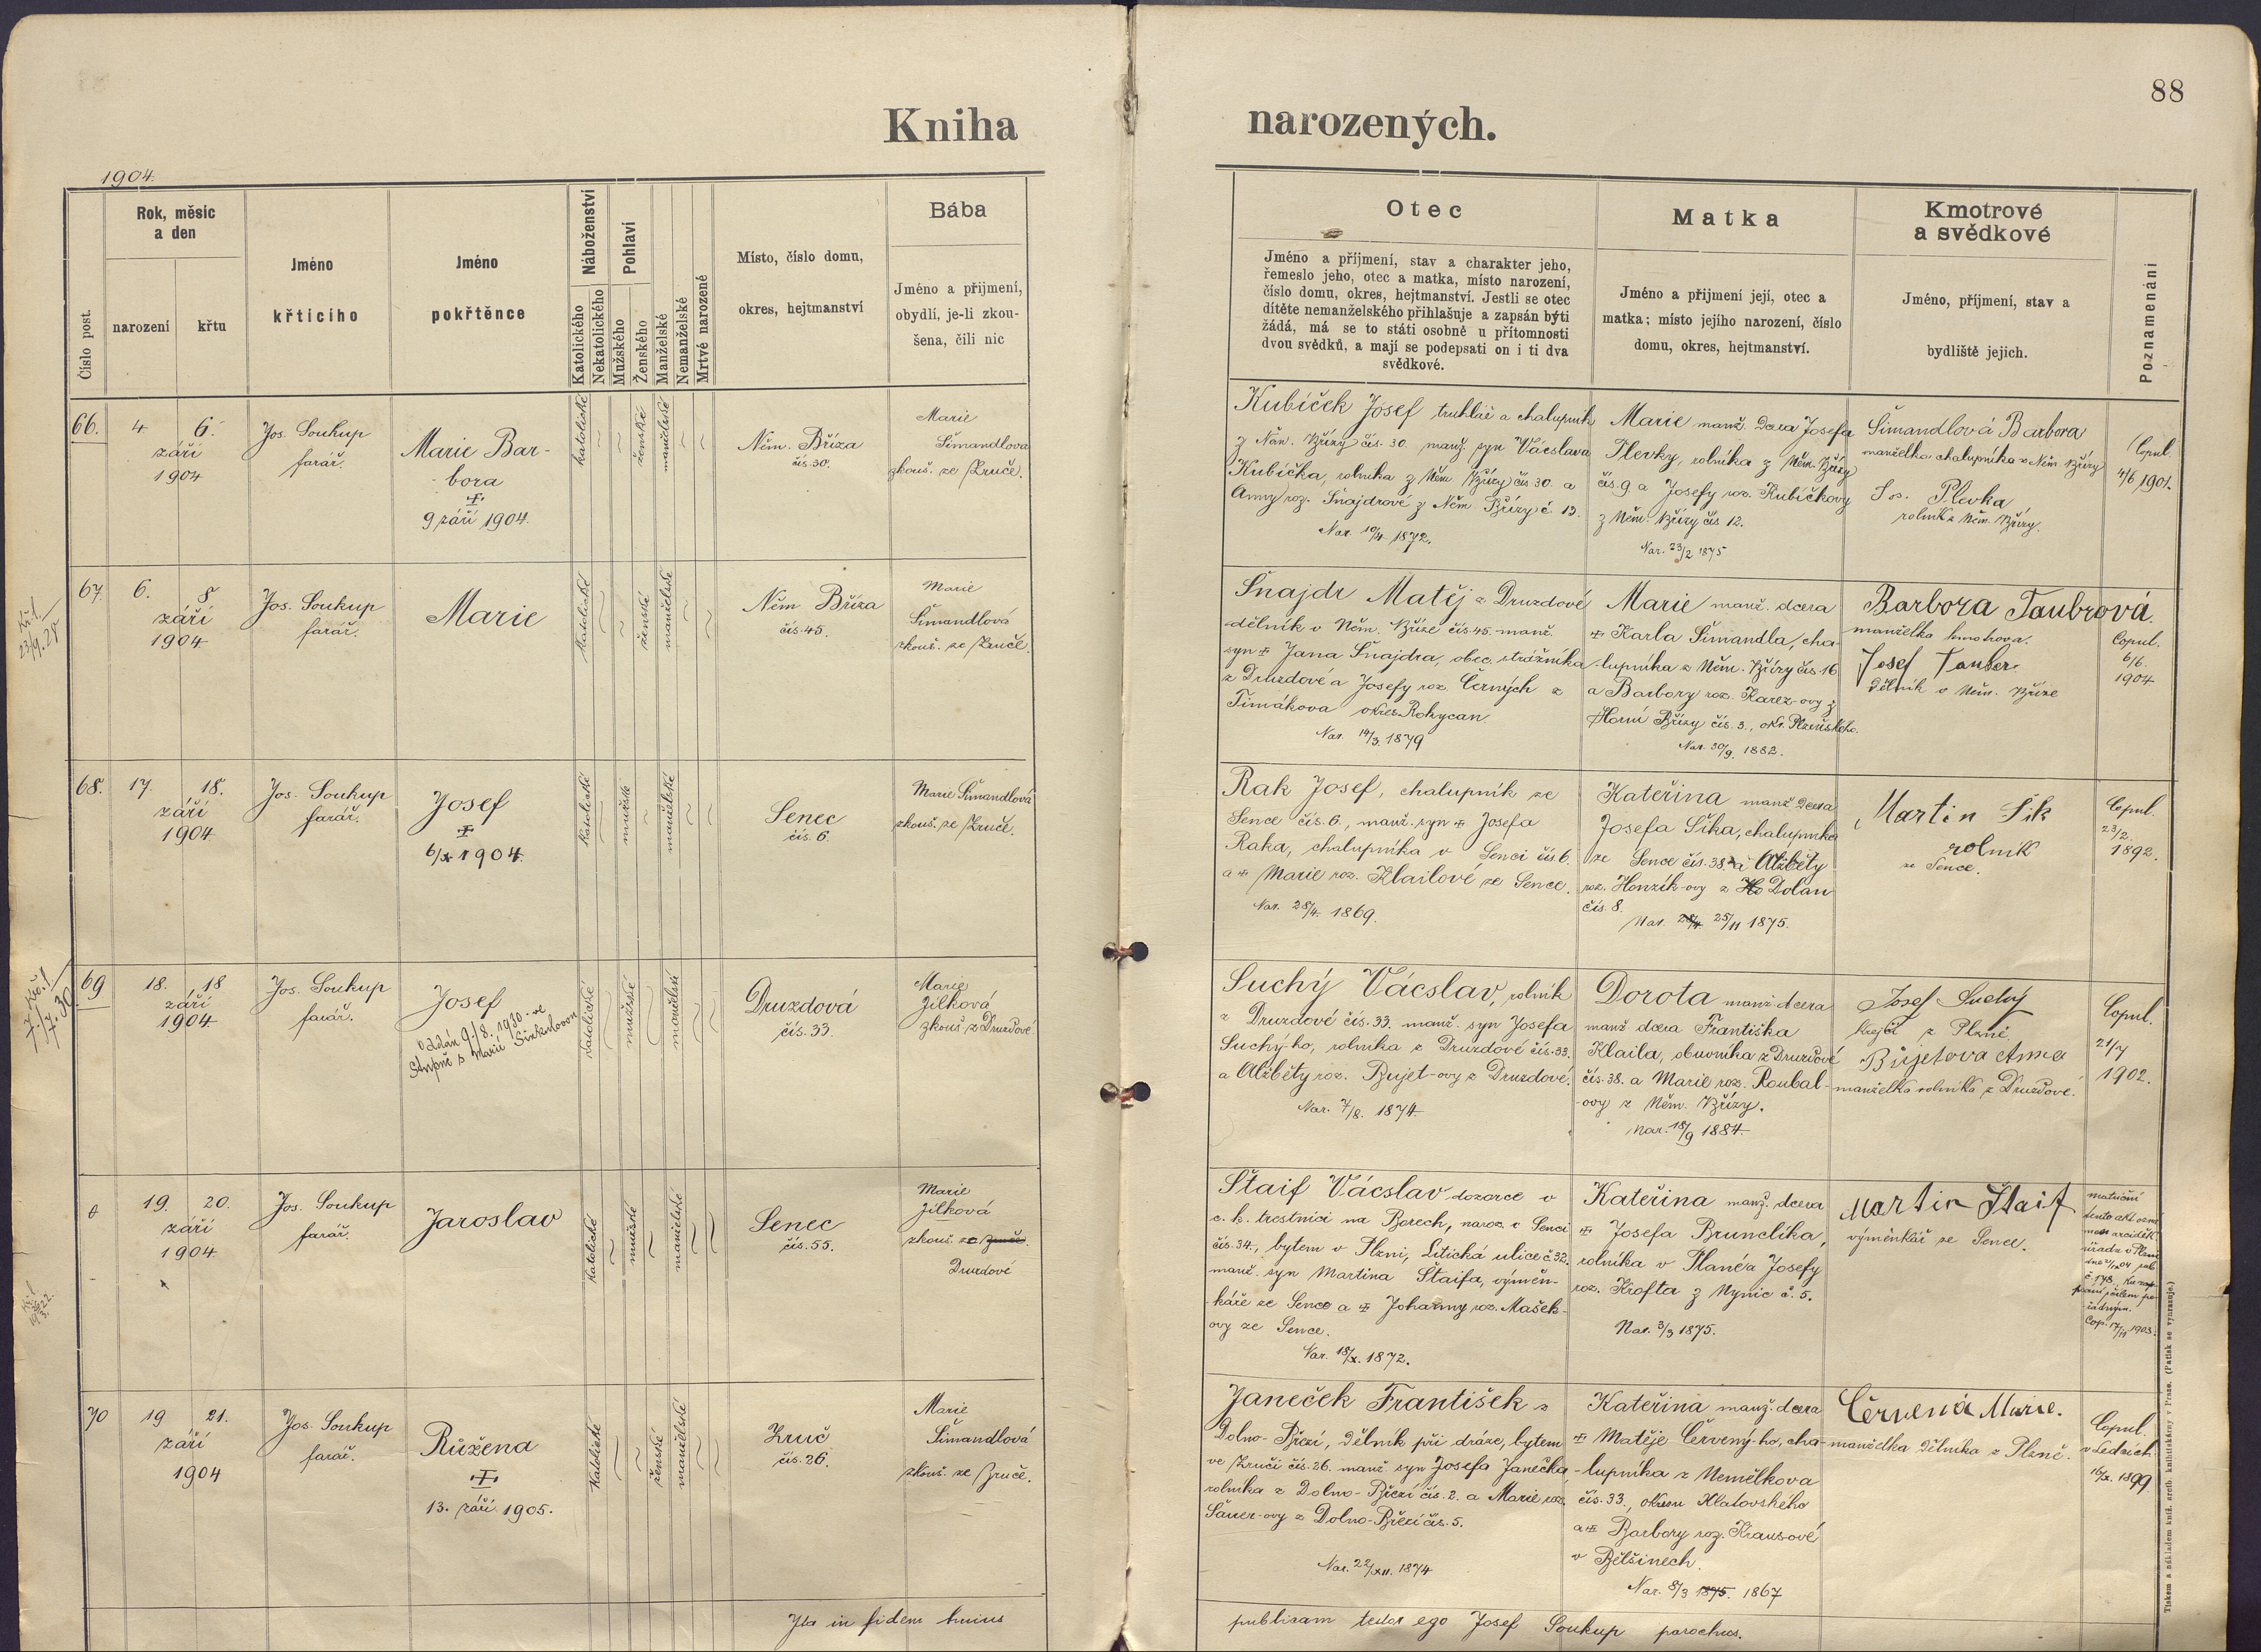 88
Kniha narozených.
1904.
Číslo post.
Rok, měsíc
a den
narození
křtu
Jméno
křtícího
Jméno
pokřtěnce
Náboženství
Katolického
Nekatolického
Pohlaví
Mužského
Ženského
Manželské
Nemanželské
Mrtvé narozené
Místo, číslo domu,
okres, hejtmanství
Bába
Jméno a přijmení,
obydlí, je-li zkou-
šena, čili nic
Otec
Jméno a příjmení, stav a charakter jeho,
řemeslo jeho, otec a matka, místo narození,
číslo domu, okres, hejtmanství. Jestli se otec
dítěte nemanželského přihlašuje a zapsán býti
žádá, má se to státi osobně u přítomnosti
dvou svědků, a mají se podepsati on i ti dva
svědkové.
Matka
Jméno a přijmení její, otec a
matka; místo jejího narození, číslo
domu, okres, hejtmanství.
Kmotrové
a svědkové
Jméno, příjmení, stav a
bydliště jejich.
Poznamenání
66.
4 6.
září
1904
Jos. Soukup
farář.
Marie Bar-
bora
9 září 1904.
katolické
ženské
manželské
Něm. Bříza
čís. 30.
Marie
Šimandlova
zkouš. ze Zruče.
Kubíček Josef truhlář a chalupník
z Něm. Břízy čís. 30. manž. syn Vácslava
Kubíčka, rolníka z Něm Břízy čís 30. a
Anny roz. Šnajdrové z Něm. Břízy č 13.
Nar. 10/4 1872.
Marie manž. dcera Josefa
Plevky, rolníka z Něm. Břízy
čís. 9. a Josefy roz. Kubíčkovy
z Něm. Břízy čís 12.
Nar. 23/2 1875
Šimandlová Barbora
manželka chalupníka z Něm. Břízy
Jos. Plevka
rolník z Něm. Břízy.
Copul.
4/6 1901.
67.
6. 8
září
1904
Jos. Soukup
farář.
Marie
katolické
ženské
manželské
Něm Bříza
čís. 45.
Marie
Šimandlová
zkouš. ze Zruče.
Šnajdr Matěj z Druzdové
dělník v Něm. Bříze čís 45. manž.
syn Jana Šnajdra, obec. strážníka
z Druzdové a Josefy roz. Černých z
Timákova okres Rokycan
Nar. 14/3. 1879
Marie manž. dcera
Karla Šimandla, cha-
lupníka z Něm. Břízy čís. 16
a Barbory roz. Karez-ovy z
Horní Břízy čís. 3., okr. Plzeňského.
Nar. 30/9. 1882.
Barbora Taubrová.
manželka kmotrova.
Josef Tauber
dělník v Něm. Bříze
Copul.
6/6.
1904
68.
17. 18.
září
1904
Jos. Soukup
farář.
Josef
6/X 1904.
katolické
mužské
manželské
Senec
čís. 6.
Marie Šimandlová
zkouš. ze Zruče.
Rak Josef, chalupník ze
Sence čís. 6., manž. syn Josefa
Raka, chalupníka v Senci čís 6.
a Marie roz. Klailové ze Sence.
Nar. 28/4. 1869.
Kateřina manž dcera
Josefa Šíka, chalupníka
ze Sence čís. 38. a Alžběty
roz. Honzík-ovy z Dolan
čís. 8.
Nar. 25/11 1875.
Martin Šik
rolník
ze Sence.
Copul.
23/2.
1892.
69
18. 18
září
1904
Jos. Soukup
farář.
Josef
oddán 9./8. 1930 ve
katolické
mužské
manželské
Druzdová
čís. 33.
Marie
Jílková
zkouš z Druzdové
Suchý Vácslav, rolník
z Druzdové čís. 33. manž. syn Josefa
Suchý-ho, rolníka z Druzdové čís. 33.
a Alžběty roz. Bujet-ovy z Druzdové.
Nar. 7/8. 1874
Dorota manž. dcera
manž dcera Františka
Klaila, obuvníka z Druzdové
čís. 38. a Marie roz. Roubal-
ovy z Něm. Břízy.
Nar. 18/9 1884.
Josef Suchý
krejčí z Plzně.
Bujetova Anna
manželka rolníka z Druzdové.
Copul.
21/7
1902.
19. 20.
září
1904.
Jos. Soukup
farář.
Jaroslav
katolické
mužské
manželské
Senec
čís. 55.
Marie
Jílková
zkouš. ze Zruče
Druzdové
Štaif Vácslav dozorce v
c. k. trestnici na Borech, naroz. v Senci
čís. 34., bytem v Plzni, Litická ulice č. 32.
manž. syn Martina Štaifa, výměn-
káře ze Sence a Johanny roz. Mašek-
ovy ze Sence.
Nar. 18/X. 1872.
Kateřina manž. dcera
Josefa Brunclíka,
rolníka v Plané a Josefy
roz. Krofta z Nynic č. 5.
Nar. 3/3 1875.
Martin Štaif
výměnkář ze Sence.
Cop. 17/11 1903.
70
19 21.
září
1904
Jos. Soukup
farář.
Růžena
13. září. 1905.
katolické
ženské
manželské
Zruč
čís. 26.
Marie
Šimandlová
zkouš. ze Zruče.
Janeček František z
Dolno-Březí, dělník při dráze, bytem
ve Zruči čís. 26. manž. syn Josefa Janečka,
rolníka z Dolno-Březí čís. 2. a Marie roz.
Šauer-ovy z Dolno-Březí čís. 5.
Nar. 22/XII. 1874
Kateřina manž. dcera
Matěje Červený-ho, cha-
lupníka z Nemělkova
čís. 33., okresu Klatovského
a Barbory roz. Krausové
v Běšinech.
Nar. 8/3 1875. 1867
Červená Marie.
manželka dělníka z Plzně.
Copul.
v Ledcích
16/X. 1899
Ita in fidem huius
publicam testor ego Josef Soukup parochus.
Tiskem a nákladem kníž. arcib. knihtiskárny v Praze. (Patisk se vyhrazuje.)